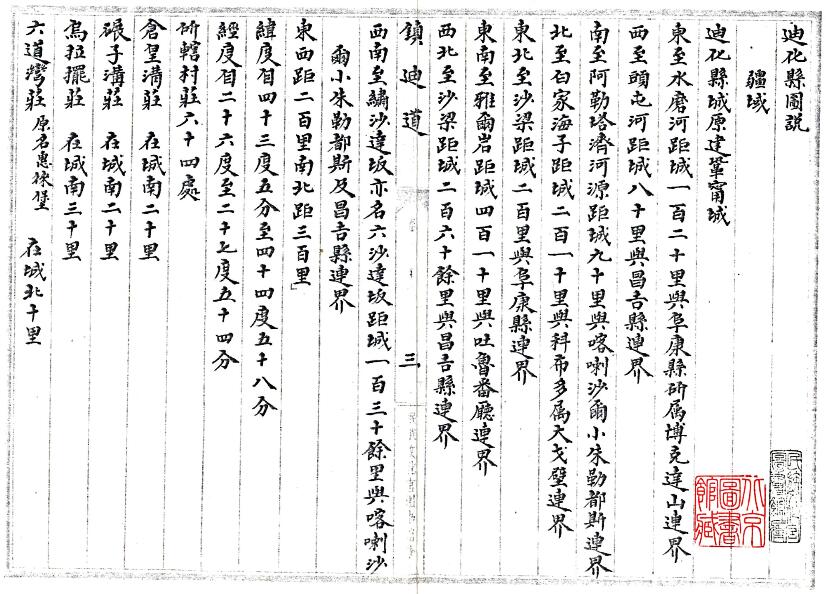 迪化縣圖說
疆域
迪化縣城原建鞏甯城
東至水磨河距城一百二十里與阜康縣所屬博克達山連界
西至頭屯河距城八十里與昌吉縣連界
南至阿勒塔濟河源距城九十里與喀喇沙爾小朱勒都斯連界
北至白家海子距城二百一十里與科布多属大戈壁連界
東北至沙梁距城二百里與阜康縣連界
東南至雅爾岩距城四百一十里與吐魯番廳連界
西北至沙梁距城二百六十餘里與昌吉縣連界
鎮迪道 三
西南至繡沙達坂亦名六沙達坂距城一百三十餘里與喀喇沙
爾小朱勒都斯及昌吉縣連界
東西距二百里南北距三百里
緯度自四十三度五分至四十四度五十八分
經度自二十六度至二十七度五十四分
所轄村莊六十四處
倉皇溝莊 在城南二十里
碾子溝莊 在城南二十里
烏拉擺莊 在城南三十里
六道灣莊 原名惠徠堡 在城北十里
北京圖書館藏